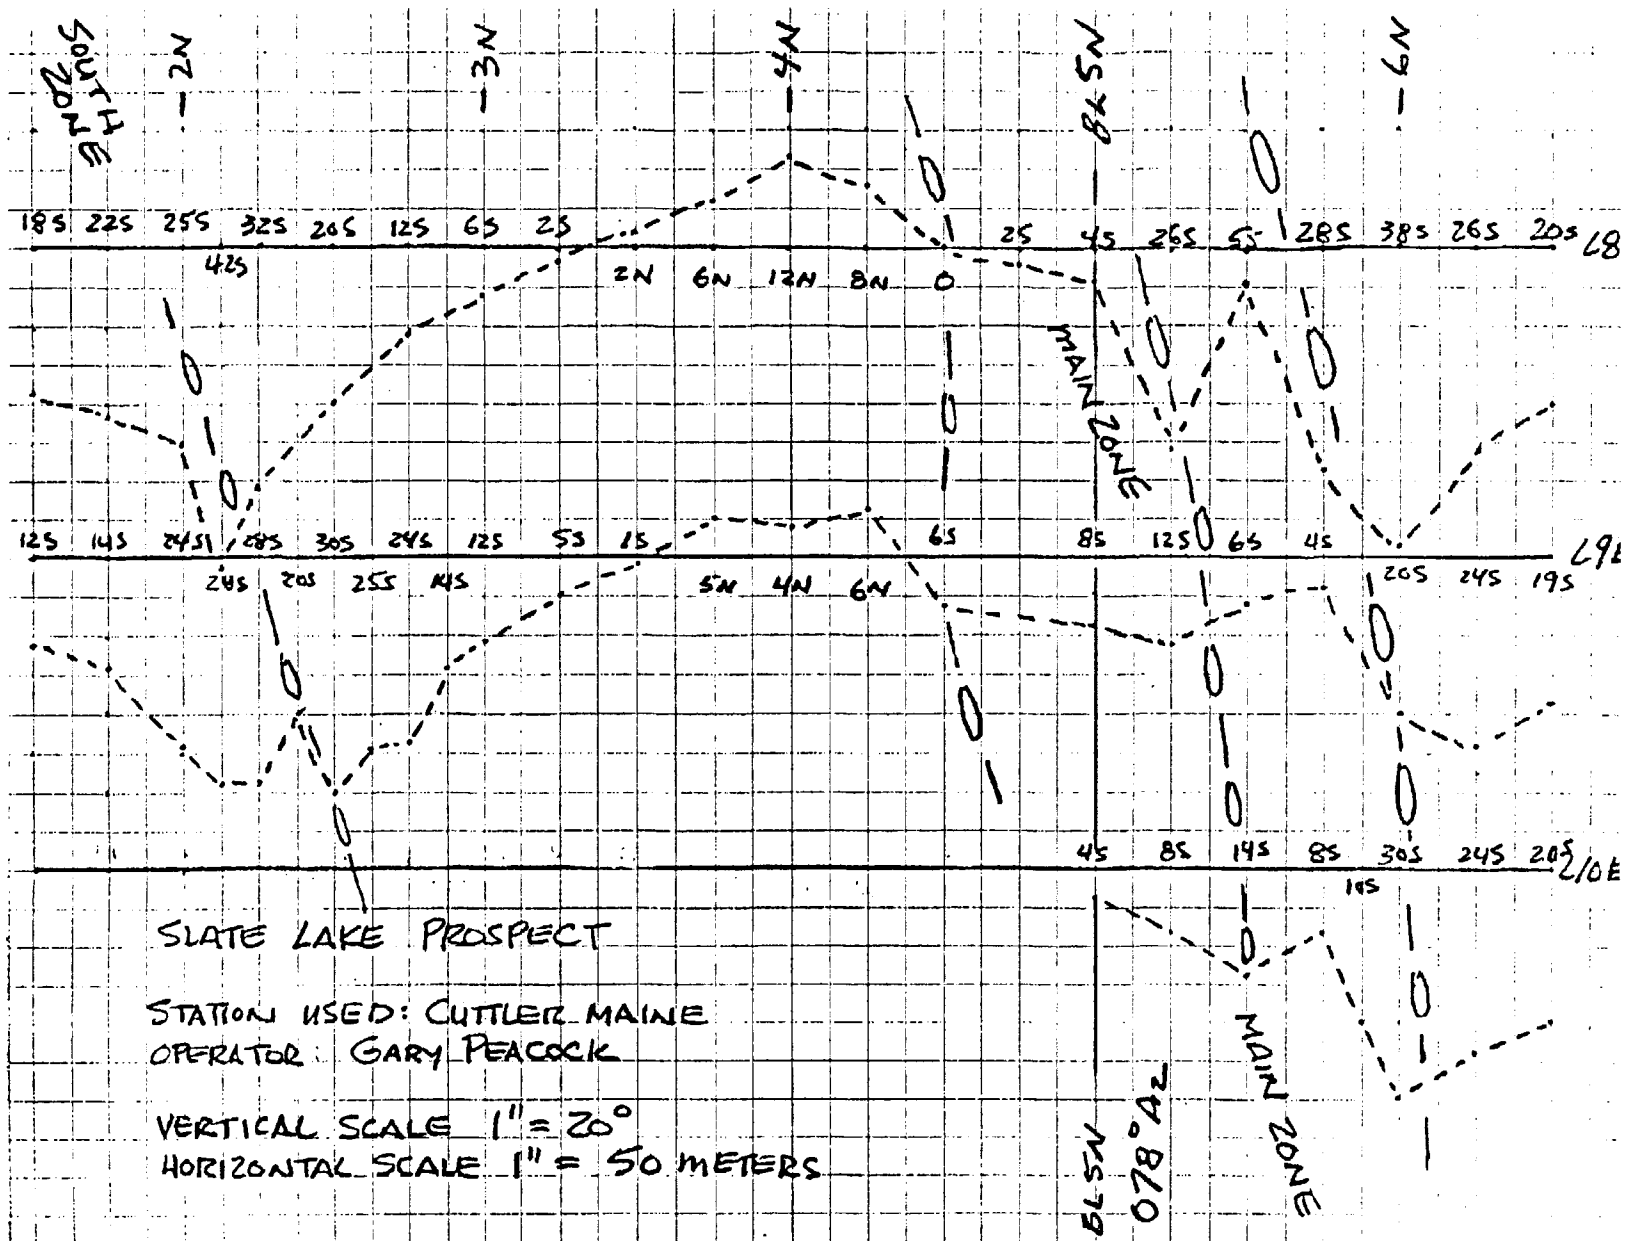 SOUTH ZONE
- 2N
- 3N
- 4N
BL 5N
- 6N
18S 22S 25S 32S 20S 12S 6S 2S 2S 4S 26S 5S 28S 38S 26S 20S L8
42S 2N 6N 12N 8N 0
MAIN ZONE
12S 14S 24S 28S 30S 24S 12S 5S 1S 6S 8S 12S 6S 4S L9E
28S 20S 25S 14S 5N 4N 6N 20S 24S 19S
4S 8S 14S 8S 30S 24S 20S L10E
10S
SLATE LAKE PROSPECT
STATION USED: CUTTLER MAINE
OPERATOR: GARY PEACOCK
VERTICAL SCALE 1" = 20°
HORIZONTAL SCALE 1" = 50 METERS
BL5N
078° Az
MAIN ZONE